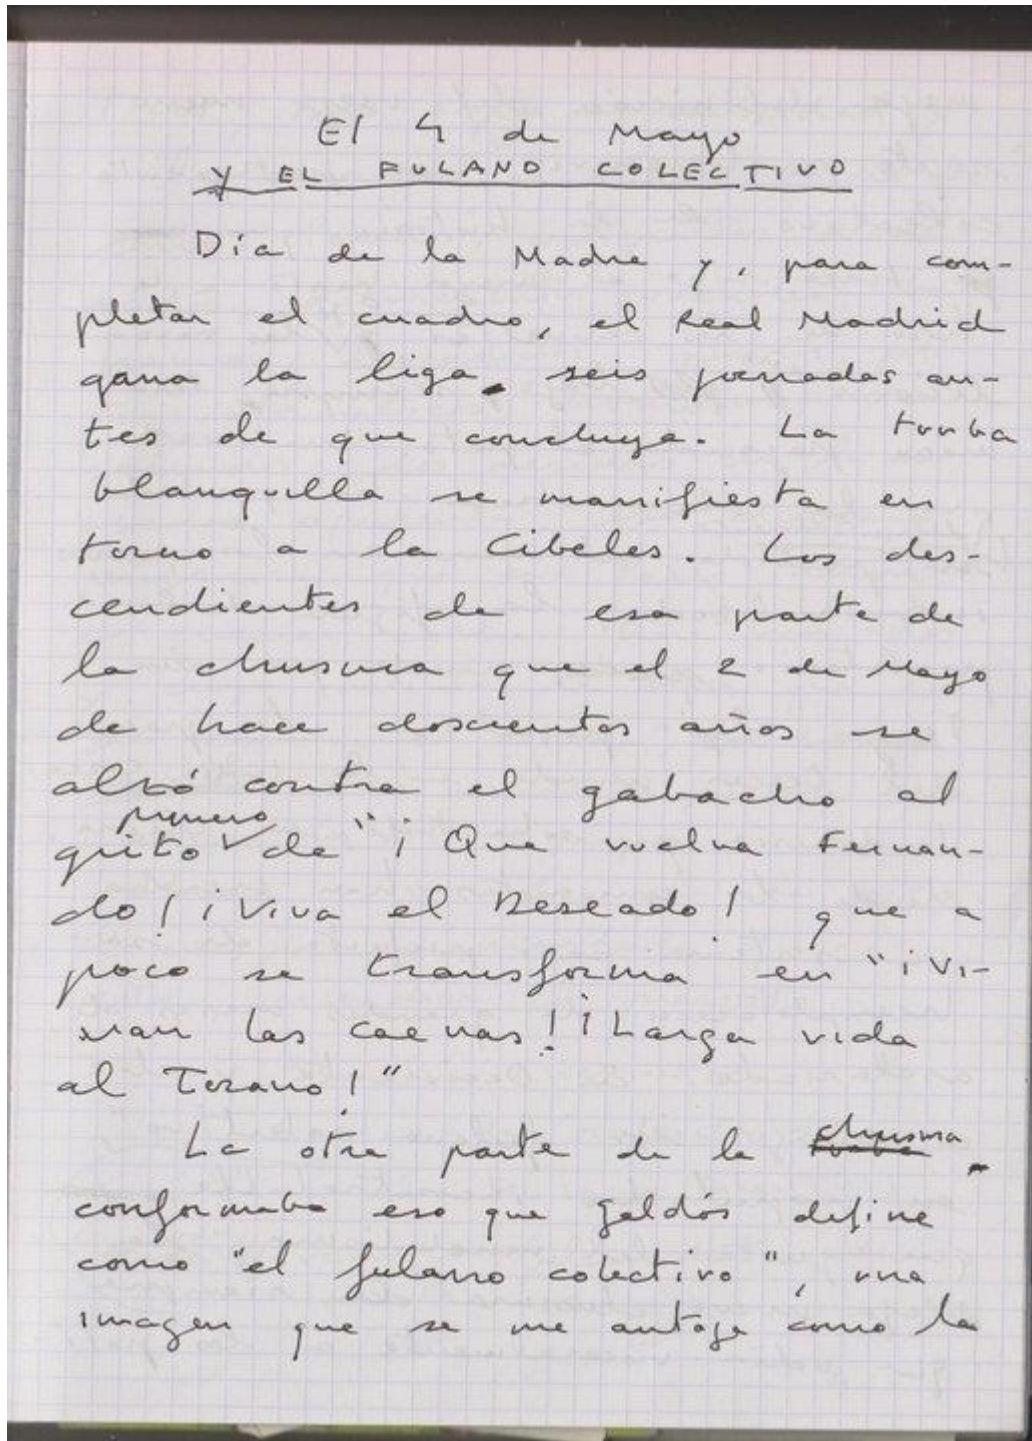 El 4 de Mayo
Y EL FULANO COLECTIVO
Día de la Madre y, para com-
pletar el cuadro, el Real Madrid
gana la liga seis jornadas an-
tes de que concluya. La turba
blanquilla se manifiesta en
torno a la Cibeles. Los des-
cendientes de esa parte de
la chusma que el 2 de Mayo
de hace doscientos años se
alzó contra el gabacho al
primero
grito de "¡Que vuelva Fernan-
do! ¡Viva el Deseado! que a
poco se transforma en "¡Vi-
van las caenas! ¡Larga vida
al Tirano!"
La otra parte de la chusma
conformaba eso que Galdós define
como "el fulano colectivo", una
imagen que se me antoja como la